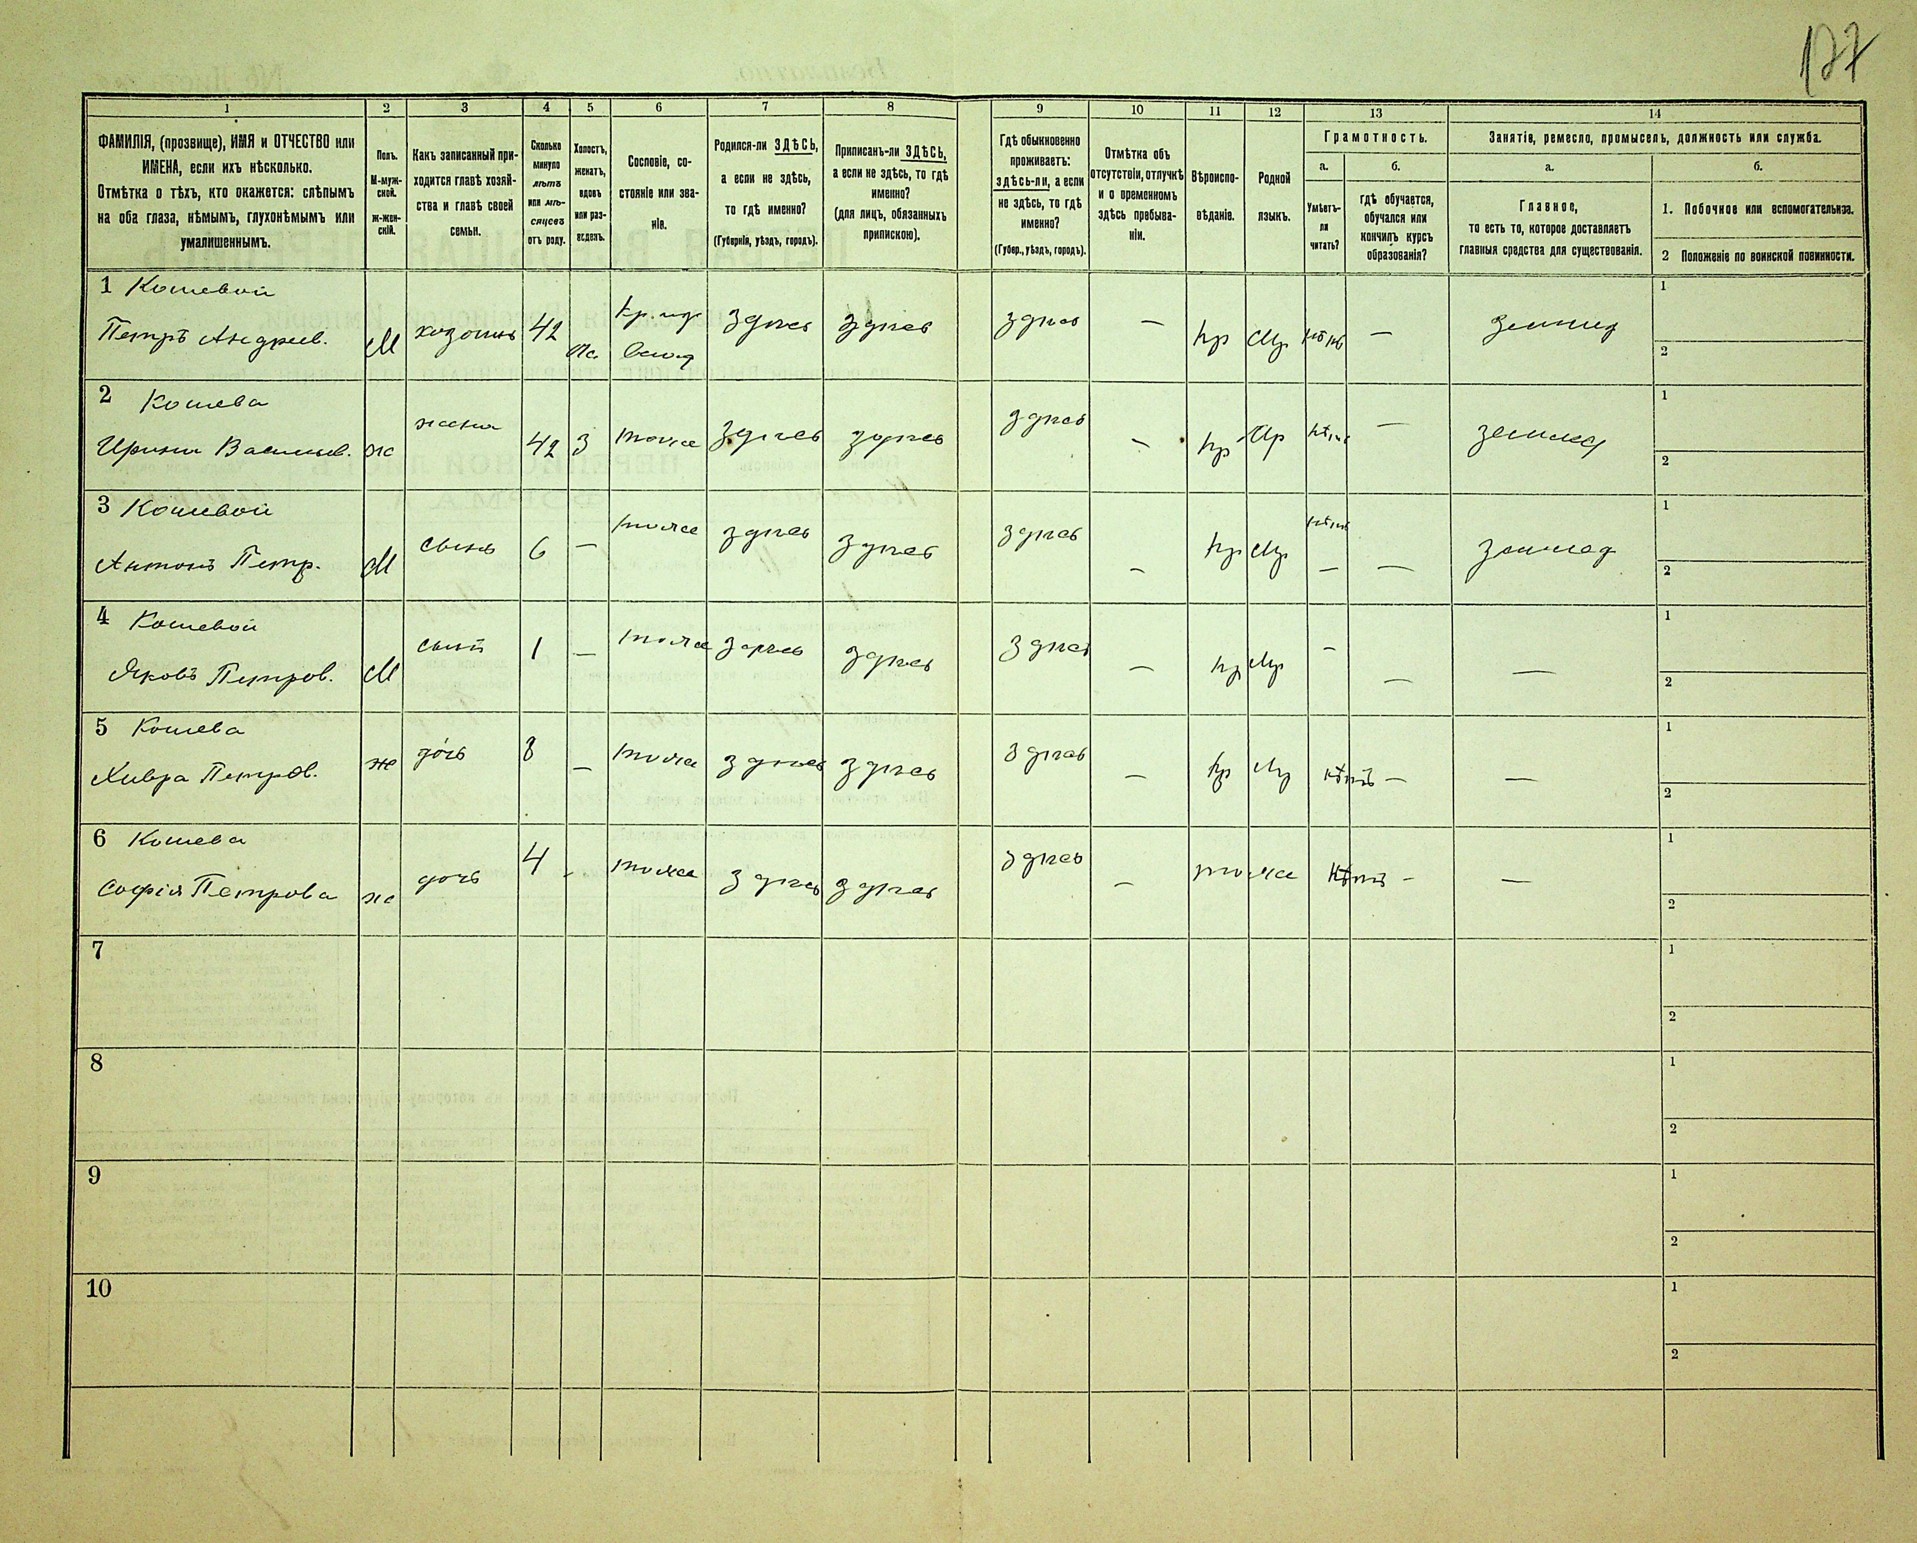 127
1 2 3 4 5 6 7 8 9 10 11 12 13 14
ФАМИЛІЯ, (прозвище), ИМЯ и ОТЧЕСТВО или
ИМЕНА, если ихъ нѣсколько.
Отмѣтка о тѣхъ, кто окажется: слѣпымъ
на оба глаза, нѣмымъ, глухонѣмымъ или
умалишеннымъ.
Полъ.
М-муж-
ской.
Ж-жен-
скій.
Какъ записанный при-
ходится главѣ хозяй-
ства и главѣ своей
семьи.
Сколько
минуло
лѣтъ
или мѣ-
сяцевъ
отъ роду.
Холостъ,
женатъ,
вдовъ
или раз-
веденъ.
Сословіе, со-
стояніе или зва-
ніе.
Родился-ли ЗДѢСЬ,
а если не здѣсь,
то гдѣ именно?
(Губернія, уѣздъ, городъ).
Приписанъ-ли ЗДѢСЬ,
а если не здѣсь, то гдѣ
именно?
(для лицъ, обязанныхъ
припискою).
Гдѣ обыкновенно
проживаетъ:
здѣсь-ли, а если
не здѣсь, то гдѣ
именно?
(Губер., уѣздъ, городъ).
Отмѣтка объ
отсутствіи, отлучкѣ
и о временномъ
здѣсь пребыва-
ніи.
Вѣроиспо-
вѣданіе.
Родной
языкъ.
Грамотность.
а.
Умѣетъ-
ли
читать?
б.
гдѣ обучается,
обучался или
кончилъ курсъ
образованія?
Занятіе, ремесло, промыселъ, должность или служба.
а.
Главное,
то есть то, которое доставляетъ
главныя средства для существованія.
б.
1. Побочное или вспомогательное.
2 Положеніе по воинской повинности.
1 Кошевой
Петръ Андреев. М хозяинъ 42 Ж. здѣсь здѣсь здѣсь — —
1
2
2 Кошева
Ирина Васильев. ж жена 42 З тоже здѣсь здѣсь здѣсь — —
1
2
3 Кошевой
Антонъ Петр. М сынъ 6 — тоже здѣсь здѣсь здѣсь — — —
1
2
4 Кошевой
Яковъ Петров. М сынъ 1 — тоже здѣсь здѣсь здѣсь — — — —
1
2
5 Кошева
Хивра Петров. ж дочь 8 — тоже здѣсь здѣсь здѣсь — нѣтъ — —
1
2
6 Кошева
Софія Петрова ж дочь 4 - тоже здѣсь здѣсь здѣсь — тоже нѣтъ — —
1
2
7
1
2
8
1
2
9
1
2
10
1
2